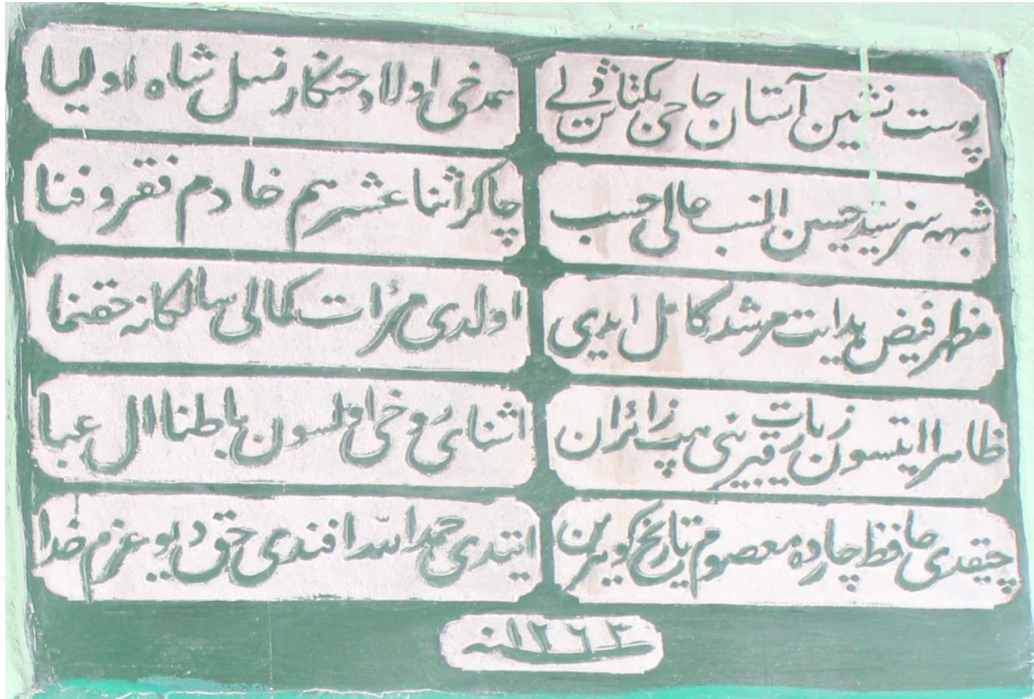 پوست نشین آستان حاجی بکتاش ولی
همدخی اولاد حنکار نسل شاه اولیا
شبهه سز سید حسین النسب عالی حسب
چاکر اثنا عشر هم خادم فقر و فنا
مظهر فیض هدایت مرشد کامل ایدی
اولدی مرات کمالی سالکانه حقنما
ظاهرا ایتسون زیارت قبرینی هپ زائران
اشنای روخی اولسون باطنا ال عبا
چیقدی حافظ چارده معصوم تاریخ کویرین
ایتدی حمدالله افندی حق دیو عزم خدا
سنه ١٢٦٣